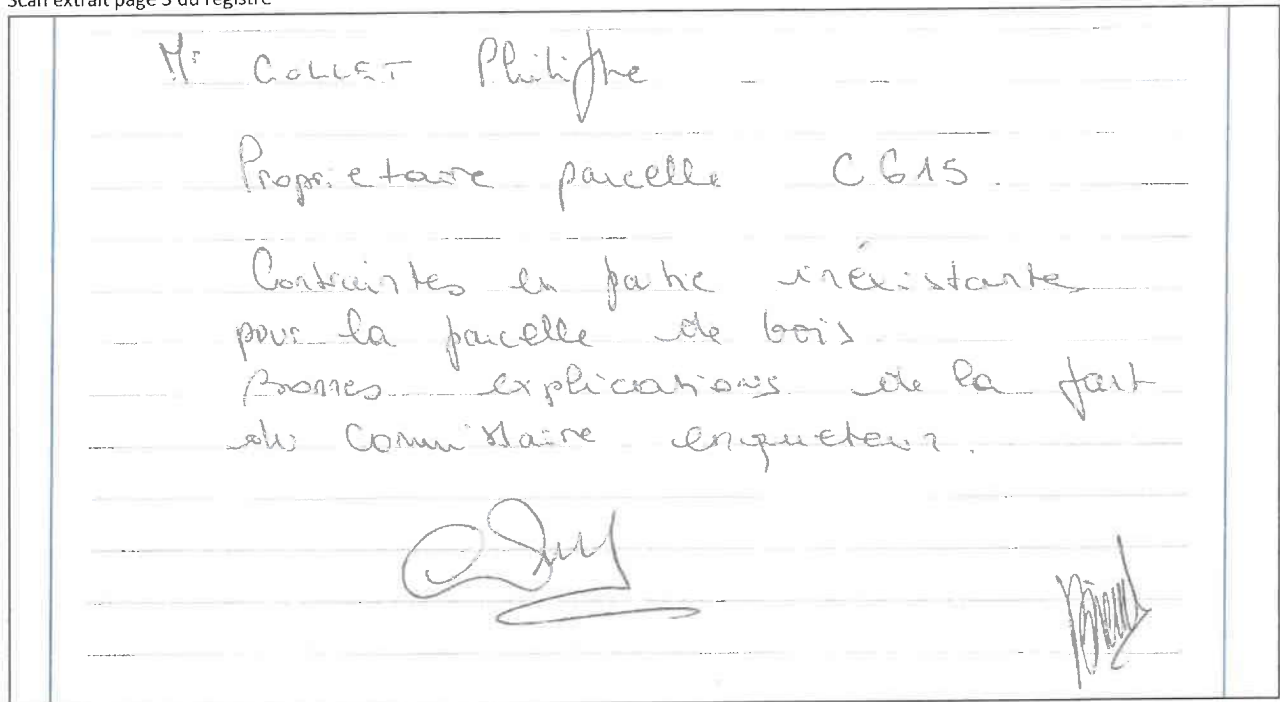 Scan extrait page 3 du registre
Mr COLLET Philippe
Proprietaire parcelle C 615.
Contraintes en partie inéxistantes
pour la parcelle de bois.
Bonnes explications de la part
du Commissaire enqueteur.